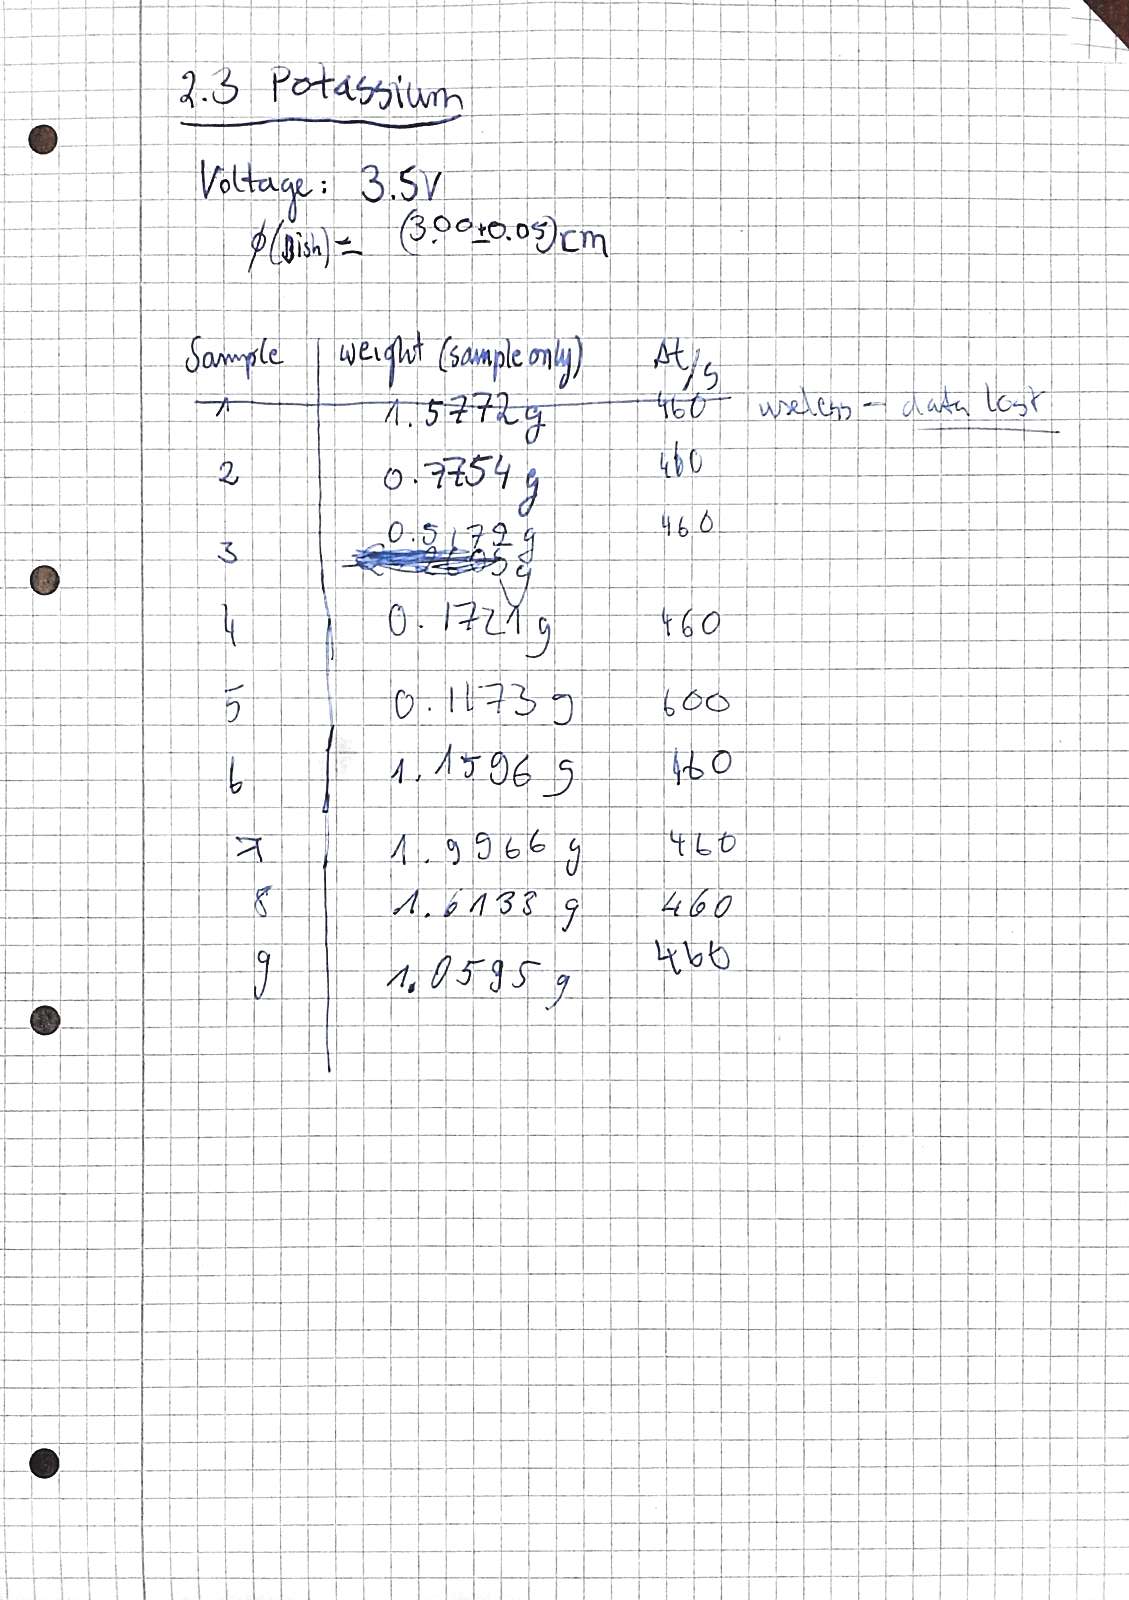 2.3 Potassium
Voltage: 3.5V
ϕ(Dish) = (3.00±0.05)cm
Sample weight (sample only) Δt/s
1 1.5772g 460 useless - data lost
2 0.7754 g 460
3 0.5172 g 460
4 0.1721 g 460
5 0.1173 g 600
6 1.1596 g 460
7 1.9966 g 460
8 1.6133 g 460
9 1.0595 g 460